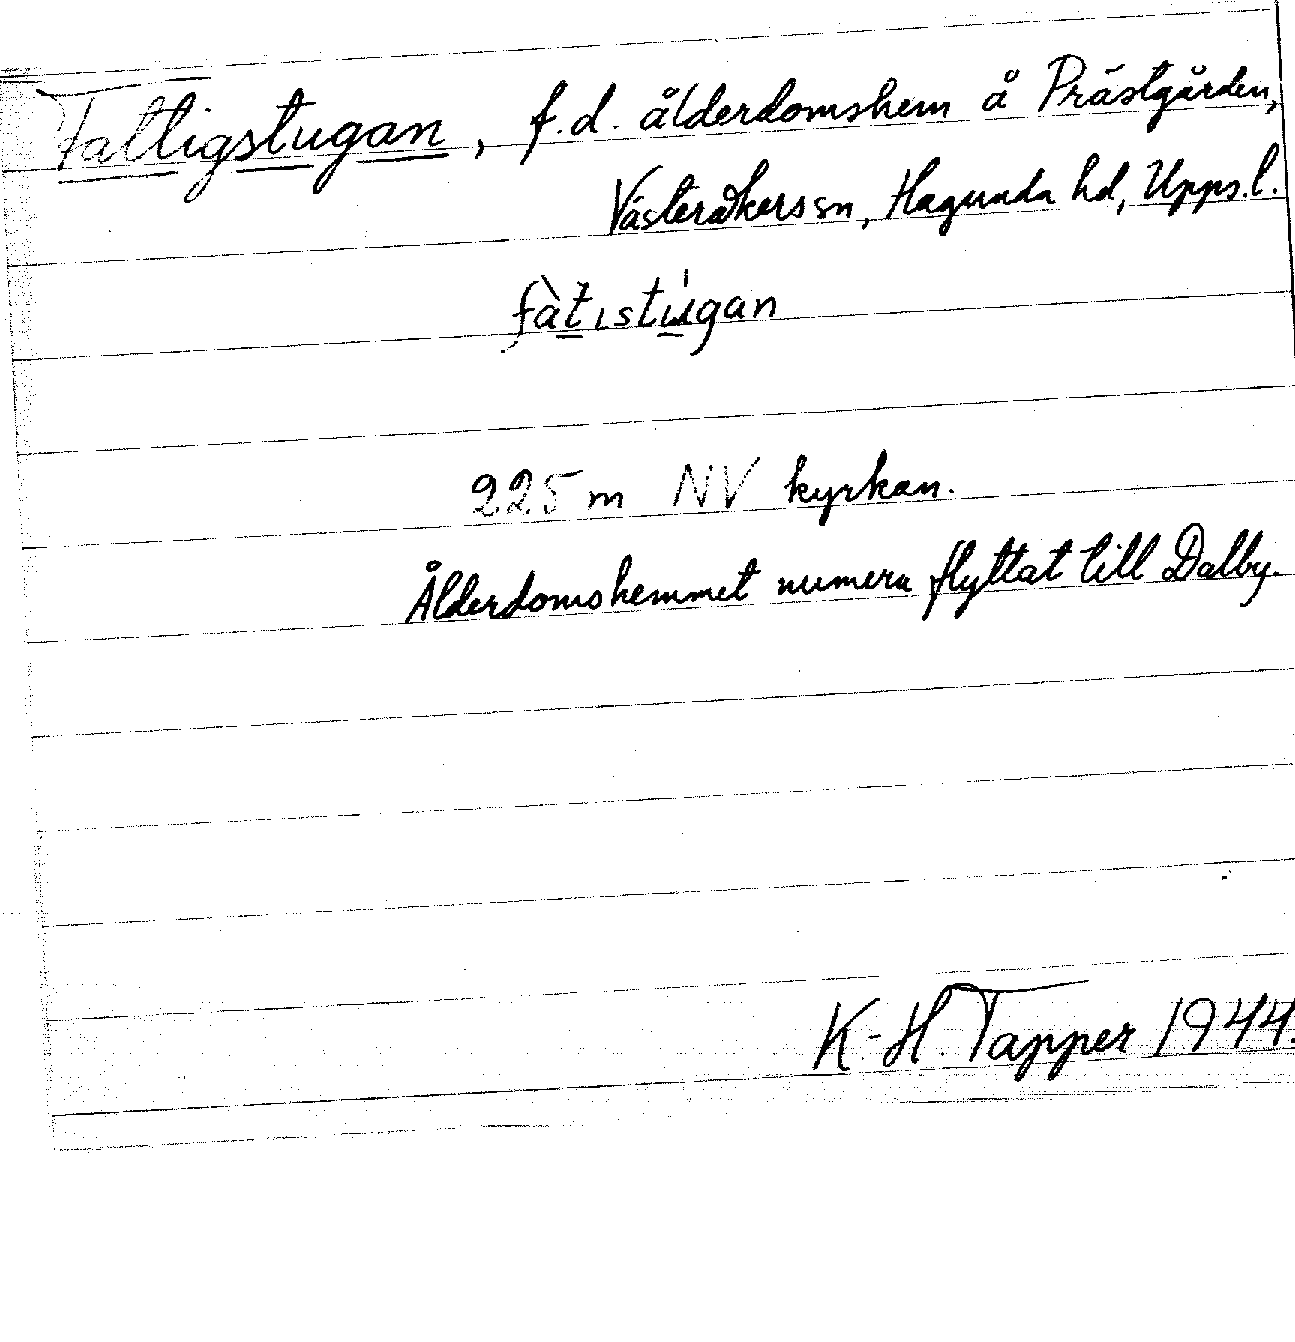 Fattigstugan, f.d. ålderdomshem å Prästgården,
Västeråkers sn, Hagunda hd, Upps. l.
fàt̠ıstu̠̍gan
225 m NV kyrkan.
Ålderdomshemmet numera flyttat till Dalby.
K-H. Tapper 1944.